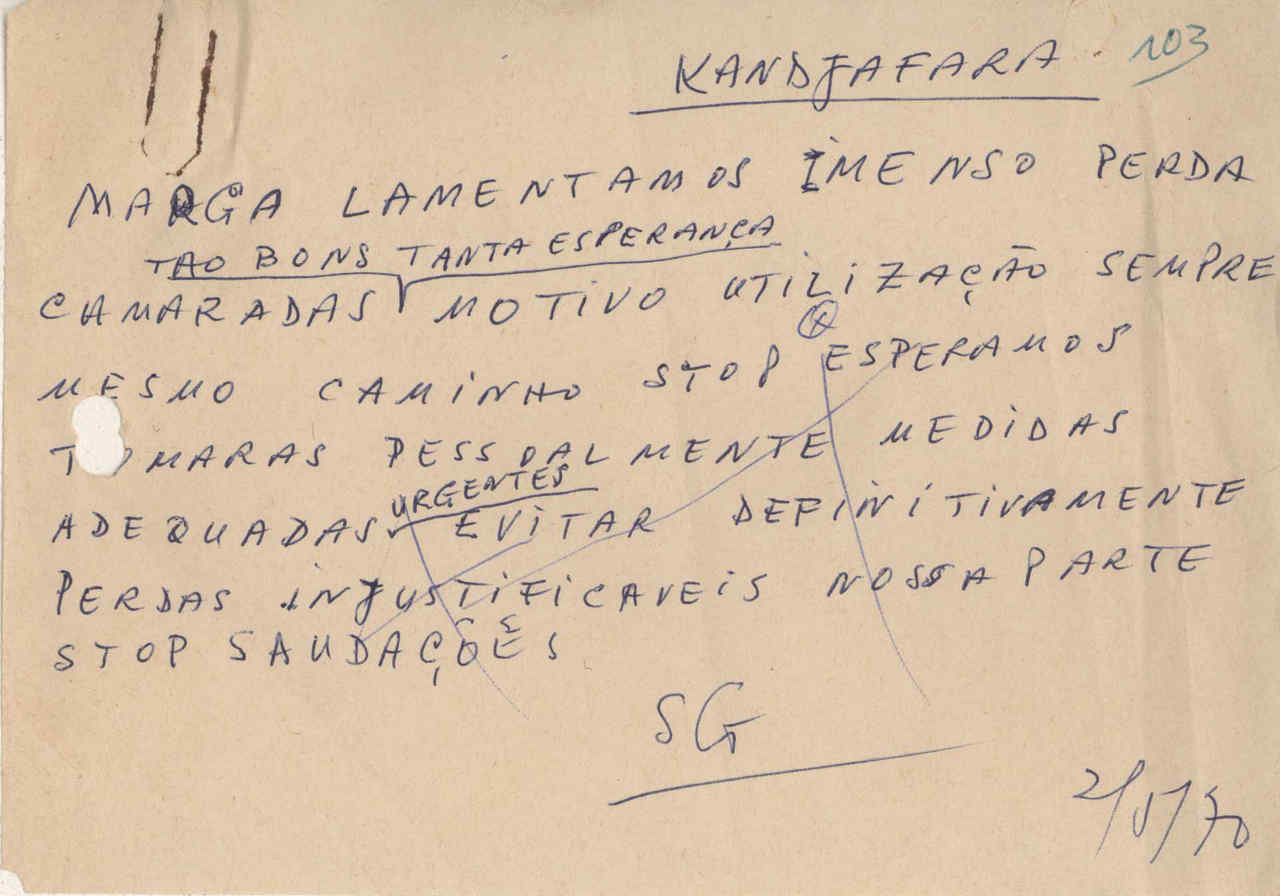 KANDJAFARA 103
MARGA LAMENTAMOS IMENSO PERDA
TAO BONS TANTA ESPERANÇA
CAMARADAS MOTIVO UTILIZAÇÃO SEMPRE
MESMO CAMINHO STOP ESPERAMOS
TOMARAS PESSOALMENTE MEDIDAS
URGENTES
ADEQUADAS EVITAR DEFINITIVAMENTE
PERDAS INJUSTIFICAVEIS NOSSA PARTE
STOP SAUDAÇÕES
SG
2/5/70